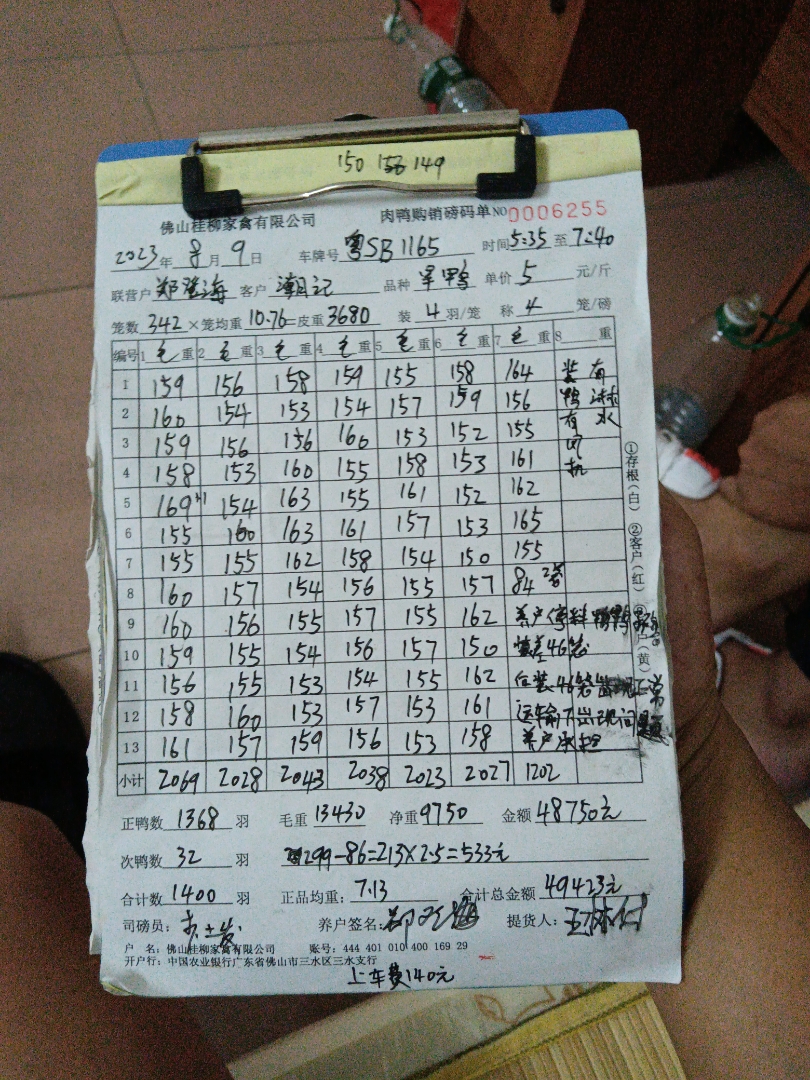 150 156 149
佛山桂柳家禽有限公司 肉鸭购销磅码单 NO 0006255
2023年 8月 9日 车牌号 粤SB1165 时间 5:35 至 7:40
联营户 郑 海 客户 潮记 品种 旱鸭 单价 5 元/斤
笼数 342 × 笼均重 10.76 = 皮重 3680 装 4 羽/笼 称 4 笼/磅
编号 1 毛 重 2 毛 重 3 毛 重 4 毛 重 5 毛 重 6 毛 重 7 毛 重 8 重
1 159 156 158 159 155 158 164 装 有
2 160 154 153 154 157 159 156 鸭 淋 水
3 159 156 156 160 153 152 155 有 风
4 158 153 160 155 158 153 161 机
5 169 154 163 155 161 152 162
6 155 160 163 161 157 153 165
7 155 155 162 158 154 150 155
8 160 157 154 156 155 157 84 2笼
9 160 156 155 157 155 162 养户停料
10 159 155 154 156 157 150 装差46笼
11 156 155 153 154 155 162 在装46笼出现正常
12 158 160 153 157 153 161 运输 出现问题
13 161 157 159 156 153 158 养户承担
小计 2069 2028 2043 2038 2023 2027 1202
①存根(白) ②客户(红) ③ 户(黄)
正鸭数 1368 羽 毛重 13430 净重 9750 金额 48750元
次鸭数 32 羽 299-86=213×2.5=533元
合计数 1400 羽 正品均重: 7.13 合计总金额 49423元
司磅员: 养户签名: 提货人:
户 名: 佛山桂柳家禽有限公司 账号: 444 401 010 400 169 29
开户行: 中国农业银行广东省佛山市三水区三水支行
上车费140元